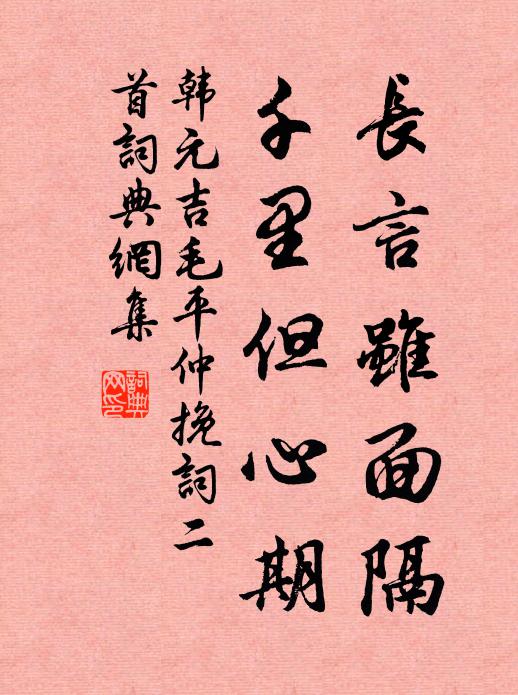 長言雖面隔
千里但心期
韩元吉毛平仲挽詞二
首詞典網集
詞典
网印